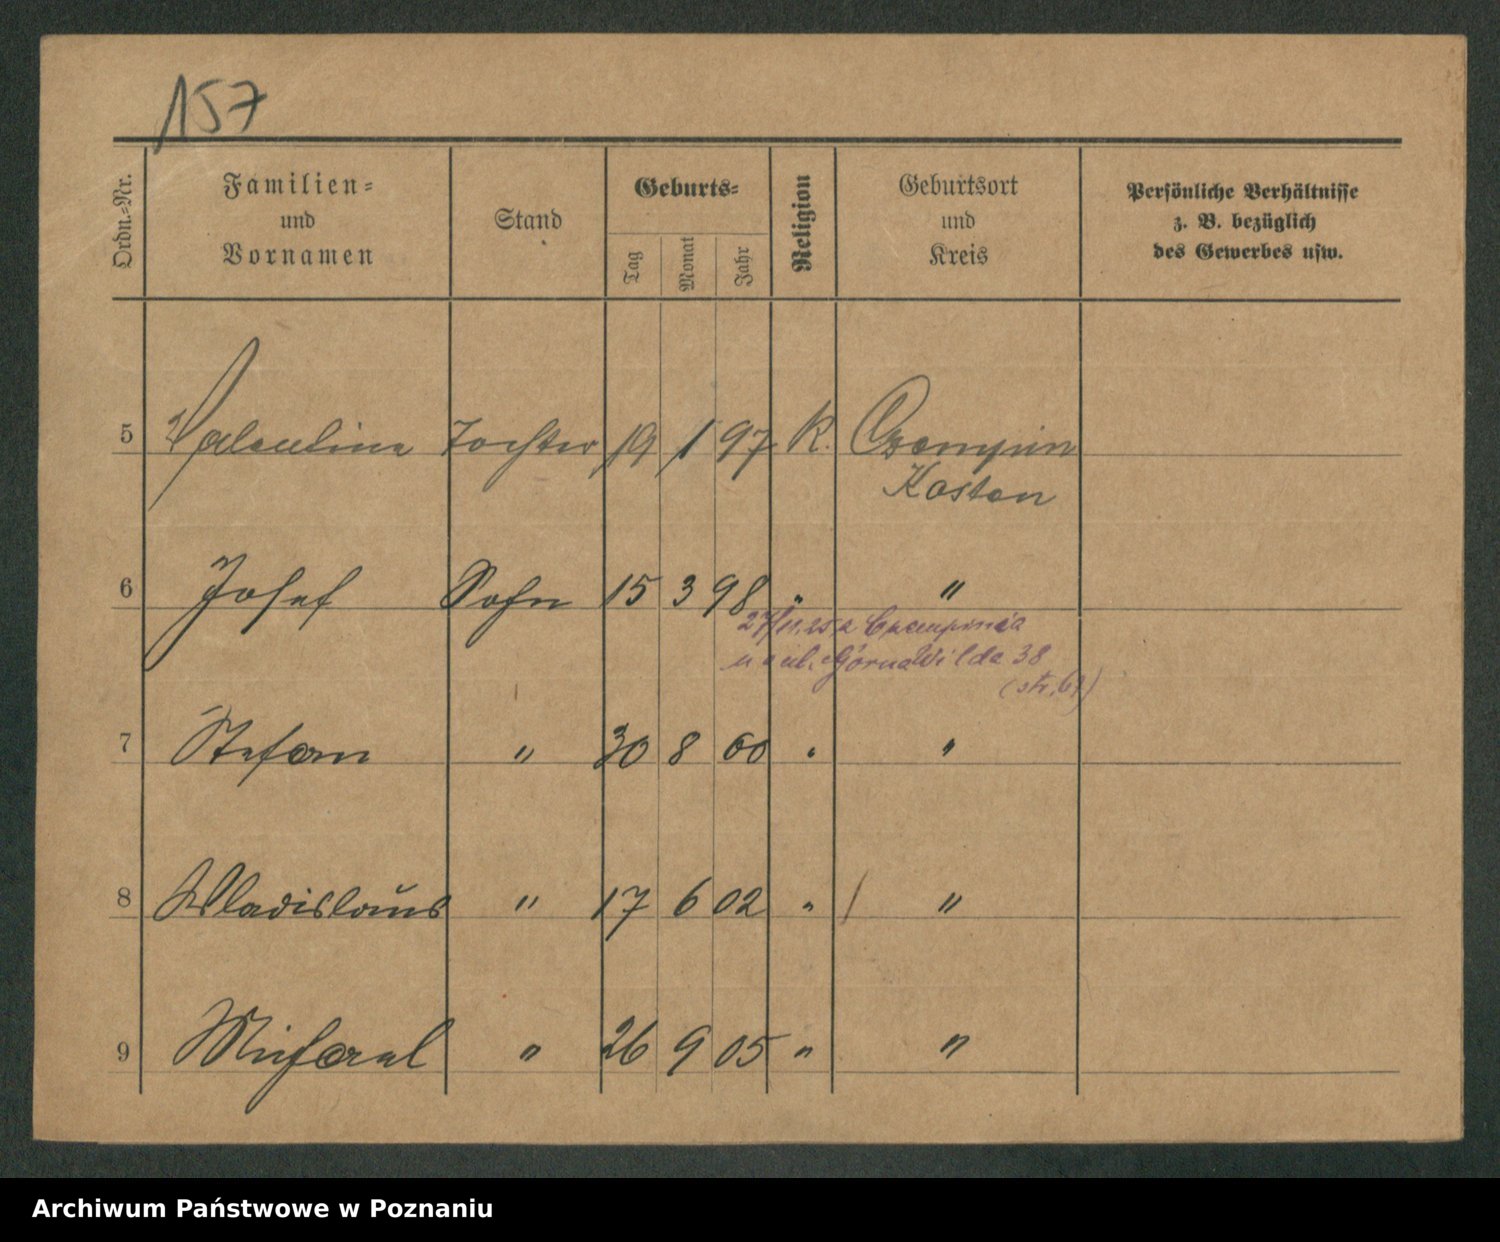 157
Ordn.-Nr.
Familien-
und
Vornamen
Stand
Geburts-
Tag
Monat
Jahr
Religion
Geburtsort
und
Kreis
Persönliche Verhältnisse
z. B. bezüglich
des Gewerbes usw.
5 Valentine Tochter 19 1 97 K. Czempin
Kosten
6 Josef Sohn 15 3 98 " "
27/11.25 z Czempinia
na ul. Górna Wilda 38
(str. 61)
7 Stefan " 30 8 00 " "
8 Wladislaus " 17 6 02 " "
9 Michael " 26 9 05 " "
Archiwum Państwowe w Poznaniu